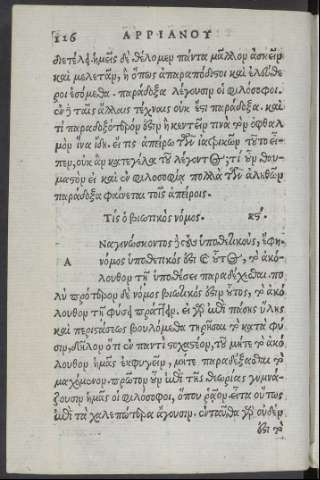 116 ΑΡΡΙΑΝΟΥ
διετέλῃ. ἡμεῖς δὲ θέλομεν πάντα μᾶλλον ἀσκεῖν
καὶ μελετᾶν, ἢ ὅπως ἀπαραπόδιστοι καὶ ἐλεύθε
ροι ἐσόμεθα. παράδοξα λέγουσιν οἱ φιλόσοφοι.
ἐν ταῖς ἄλλαις τέχναις οὐκ ἔστι παράδοξα. καὶ
τί παραδοξότερόν ἐστιν ἢ κεντεῖν τινὰ τὸν ὀφθαλ
μὸν ἵνα ἴδῃ. εἴ τις ἀπείρῳ τῶν ἰατρικῶν τοῦτο εἶ-
πεν, οὐκ ἂν κατεγέλα τοῦ λέγοντος; τί οὖν θαυ-
μαστὸν εἰ καὶ ἐν φιλοσοφίᾳ πολλὰ τῶν ἀληθῶν
παράδοξα φαίνεται τοῖς ἀπείροις.
Τίς ὁ βιωτικὸς νόμος. κϛ.
Ναγινώσκοντος τοὺς ὑποθετικοὺς, ἔφη.
Α νόμος ὑποθετικός ἐστι καὶ οὗτος, τὸ ἀκό-
λουθον τῇ ὑποθέσει παραδέχεσθαι. πο
λὺ πρότερον δὲ νόμος βιωτικός ἐστιν οὗτος, τὸ ἀκό
λουθον τῇ φύσει πράττειν. εἰ γὰρ ἐπὶ πάσης ὕλης
καὶ περιστάσεως βουλόμεθα τηρῆσαι τὸ κατὰ φύ
σιν, δῆλον ὅτι ἐν παντὶ στοχαστέον, τοῦ μήτε τὸ ἀκό
λουθον ἡμᾶς ἐκφυγεῖν, μήτε παραδέξασθαι τὸ
μαχόμενον. πρῶτον οὖν ἐπὶ τῆς θεωρίας γυμνά-
ζουσιν ἡμᾶς οἱ φιλόσοφοι, ὅπου ῥᾷον. εἶτα οὕτως
ἐπὶ τὰ χαλεπώτερα ἄγουσιν. ἐνταῦθα γὰρ οὐδέν
ἐστι τὸ